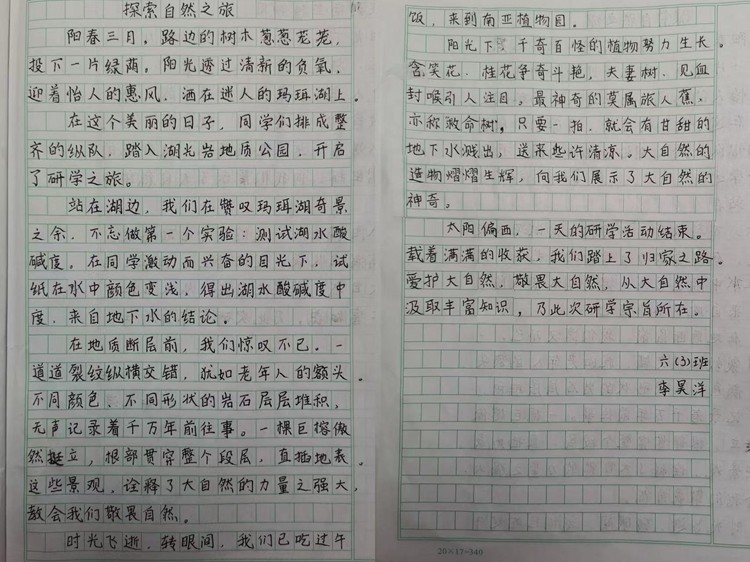 探索自然之旅
阳春三月，路边的树木葱葱茏茏，
投下一片绿荫。阳光透过清新的负氧，
迎着怡人的惠风，洒在迷人的玛珥湖上。
在这个美丽的日子，同学们排成整
齐的纵队，踏入湖光岩地质公园，开启
了研学之旅。
站在湖边，我们在赞叹玛珥湖奇景
之余，不忘做第一个实验：测试湖水酸
碱度。在同学激动而兴奋的目光下，试
纸在水中颜色变浅，得出湖水酸碱度中
度，来自地下水的结论。
在地质断层前，我们惊叹不已。一
道道裂纹纵横交错，犹如老年人的额头。
不同颜色、不同形状的岩石层层堆积，
无声记录着千万年前往事。一棵巨榕傲
然挺立，根部贯穿整个段层，直插地表。
这些景观，诠释了大自然的力量之强大，
教会我们敬畏自然。
时光飞逝，转眼间，我们已吃过午
饭，来到南亚植物园。
阳光下，千奇百怪的植物努力生长。
含笑花、桂花争奇斗艳，夫妻树、见血
封喉引人注目，最神奇的莫属旅人蕉，
亦称救命树，只要一拍，就会有甘甜的
地下水溅出，送来些许清凉。大自然的
造物熠熠生辉，向我们展示了大自然的
神奇。
太阳偏西，一天的研学活动结束。
载着满满的收获，我们踏上了归家之路。
爱护大自然，敬畏大自然，从大自然中
汲取丰富知识，乃此次研学宗旨所在。
六(3)班
李昊洋
20×17=340